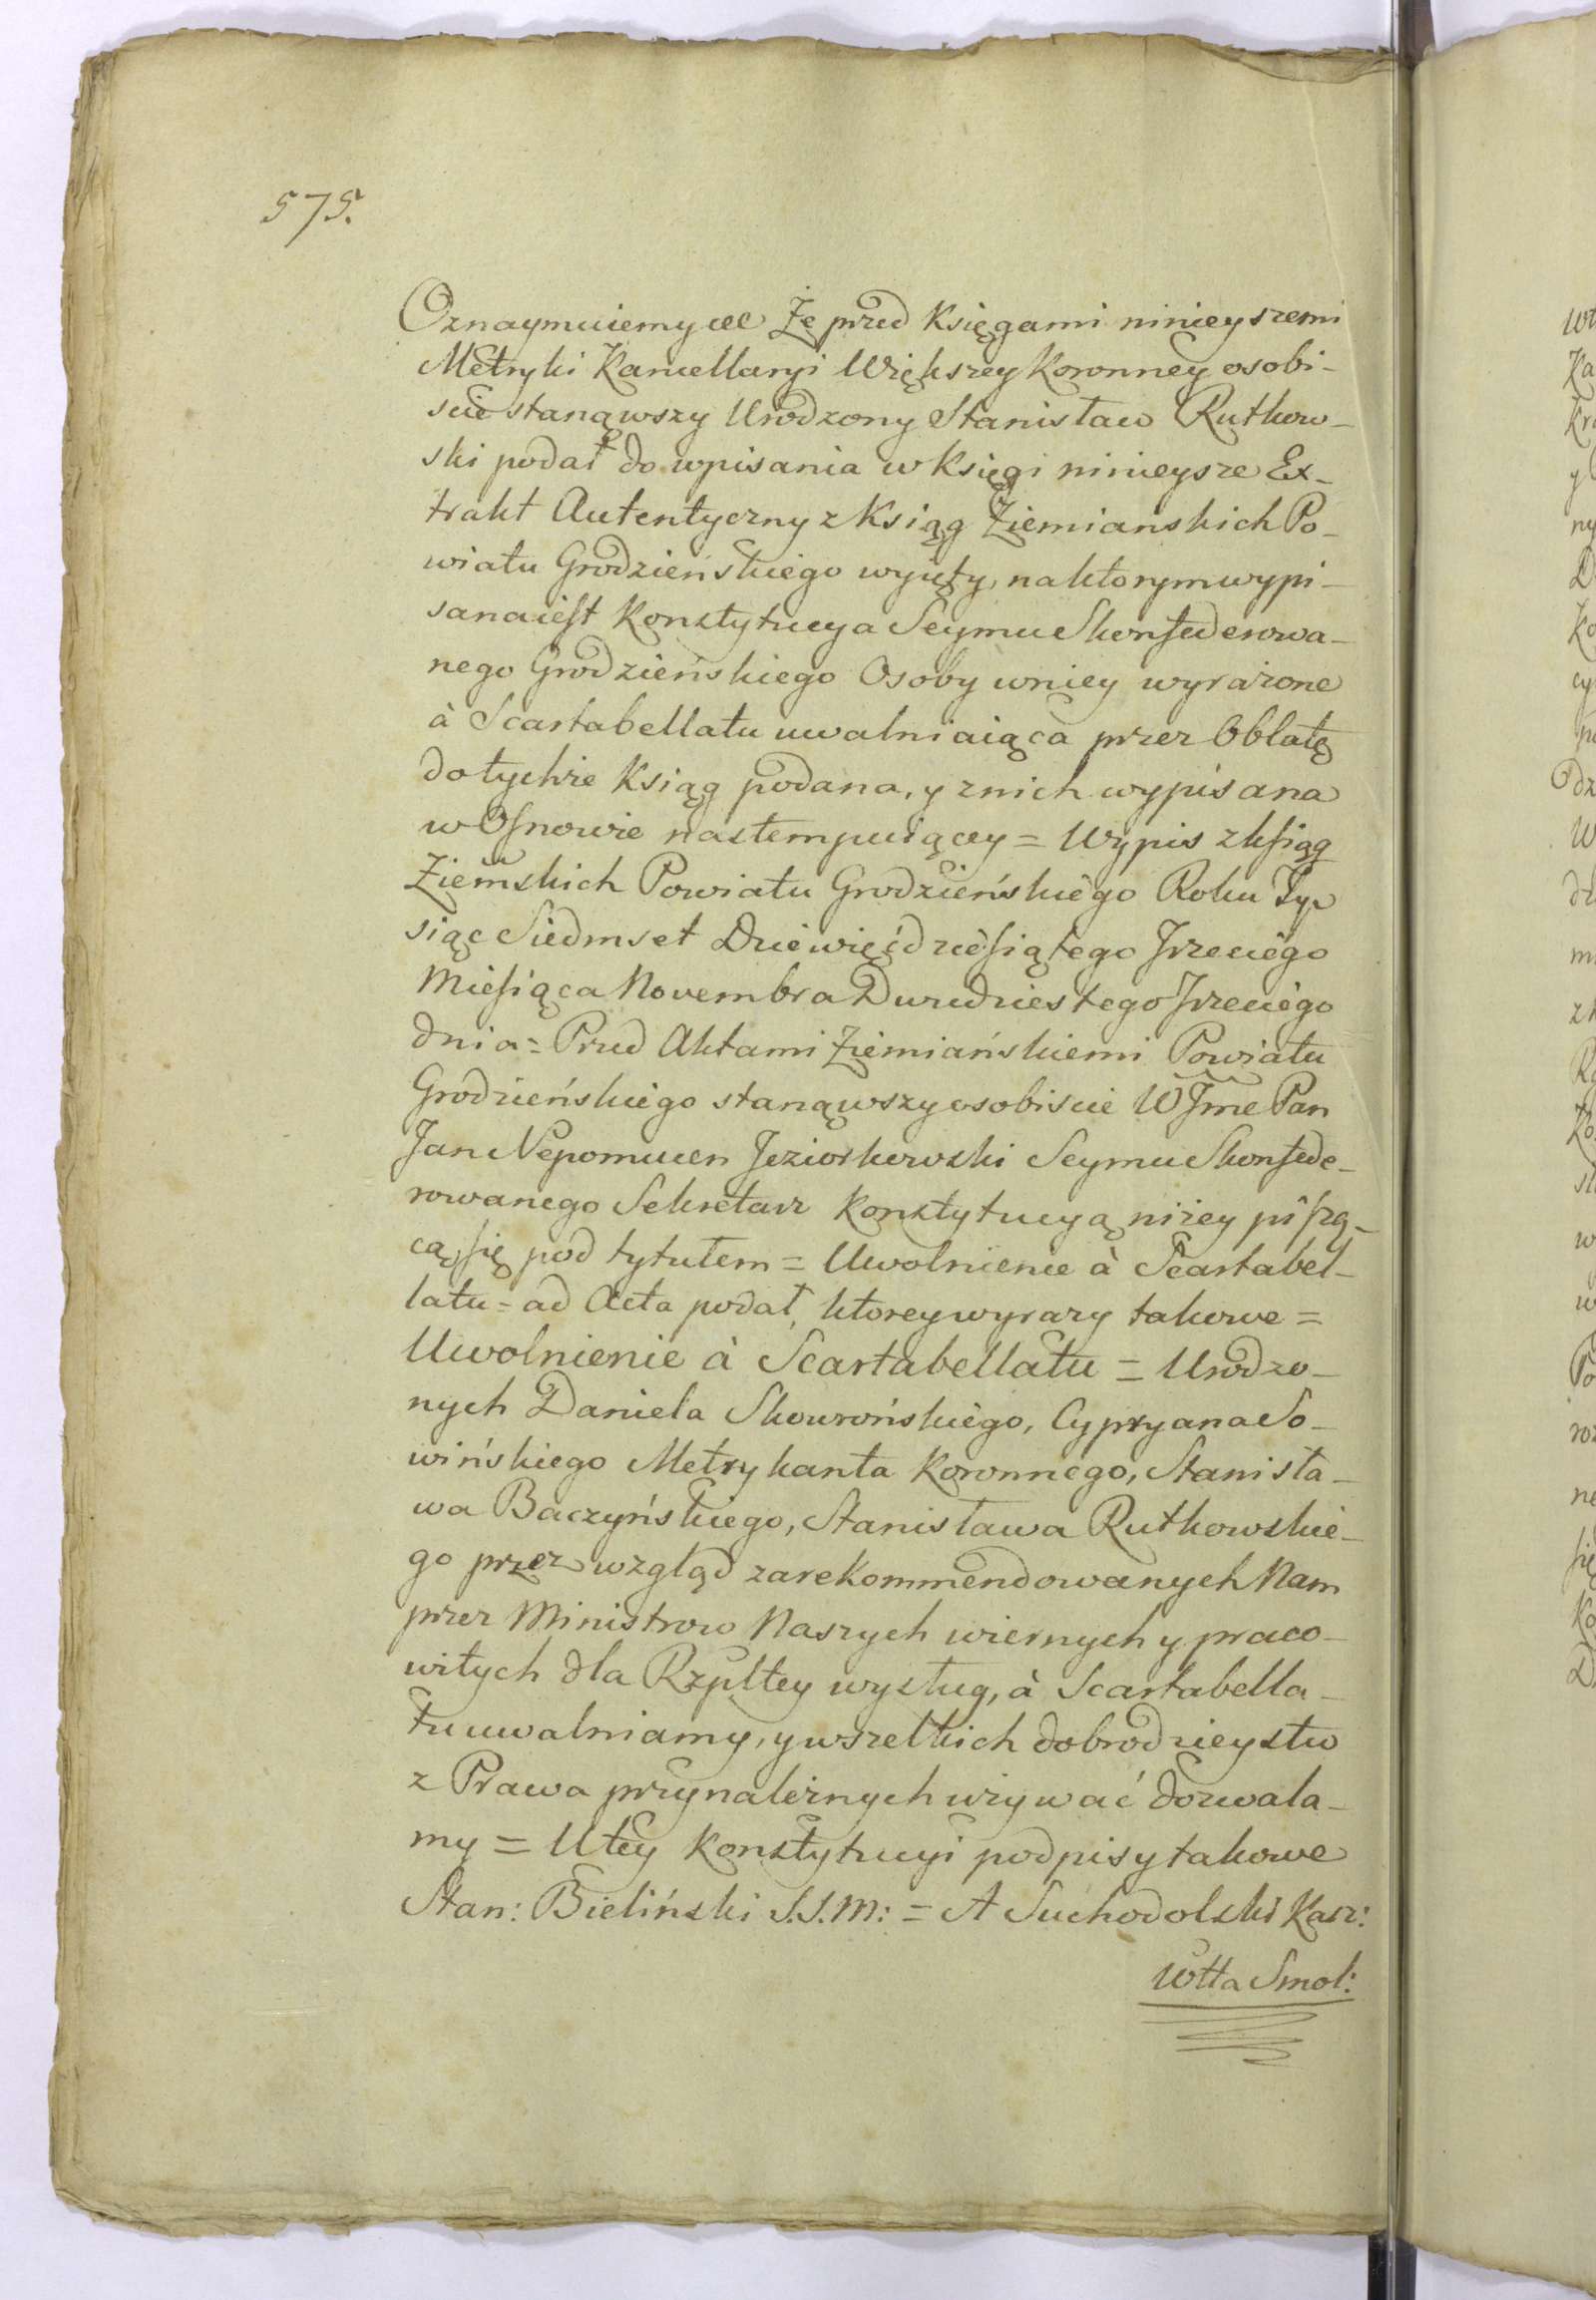 575.
Oznaymuiemy etc Że przed Księgami ninieyszemi
Metryki Kancellaryi Większey Koronney osobi-
ście stanąwszy Urodzony Stanisław Rutkow-
ski podał do wpisania w Księgi ninieysze Ex-
trakt Autentyczny z Ksiąg Ziemianskich Po-
wiatu Grodzieńskiego wyięty, na ktorym wypi-
sana iest Konstytucya Seymu Skonfederowa-
nego Grodzieńskiego Osoby w niey wyrażone
à Scartabellatu uwalniaiąca przez Oblatę
do tychże Ksiąg podana, y z nich wypisana
w Osnowie nastempuiącey = Wypis z ksiąg
Ziemskich Powiatu Grodzieńskiego Roku Ty-
siąc Siedmset Dziewięćdziesiątego Trzeciego
Miesiąca Novembra Dwudziestego Trzeciego
dnia = Przed Aktami Ziemiańskiemi Powiatu
Grodzieńskiego stanąwszy osobiscie WJme Pan
Jan Nepomucen Jeziorkowski Seymu Skonfede-
rowanego Sekretarz Konstytucyą niżey pisżą-
cą się pod tytułem = Uwolnienie à Scartabel-
latu = ad Acta podał, ktorey wyrazy takowe =
Uwolnienie à Scartabellatu = Urodzo-
nych Daniela Skowrońskiego, Cypryana So-
wińskiego Metrykanta Koronnego, Stanisła-
wa Baczyńskiego, Stanisława Rutkowskie-
go przez wzgląd zarekommendowanych Nam
przez Ministrow Naszych wiernych y praco-
witych dla Rzpltey wysług, à Scartabella-
tu uwalniamy, y wszelkich dobrodzieystw
z Prawa przynależnych używać dozwala-
my = U tey Konstytucyi podpisy takowe
Stan: Bieliński S.S.M: = A Suchodolski Kasz:
Wtta Smol: